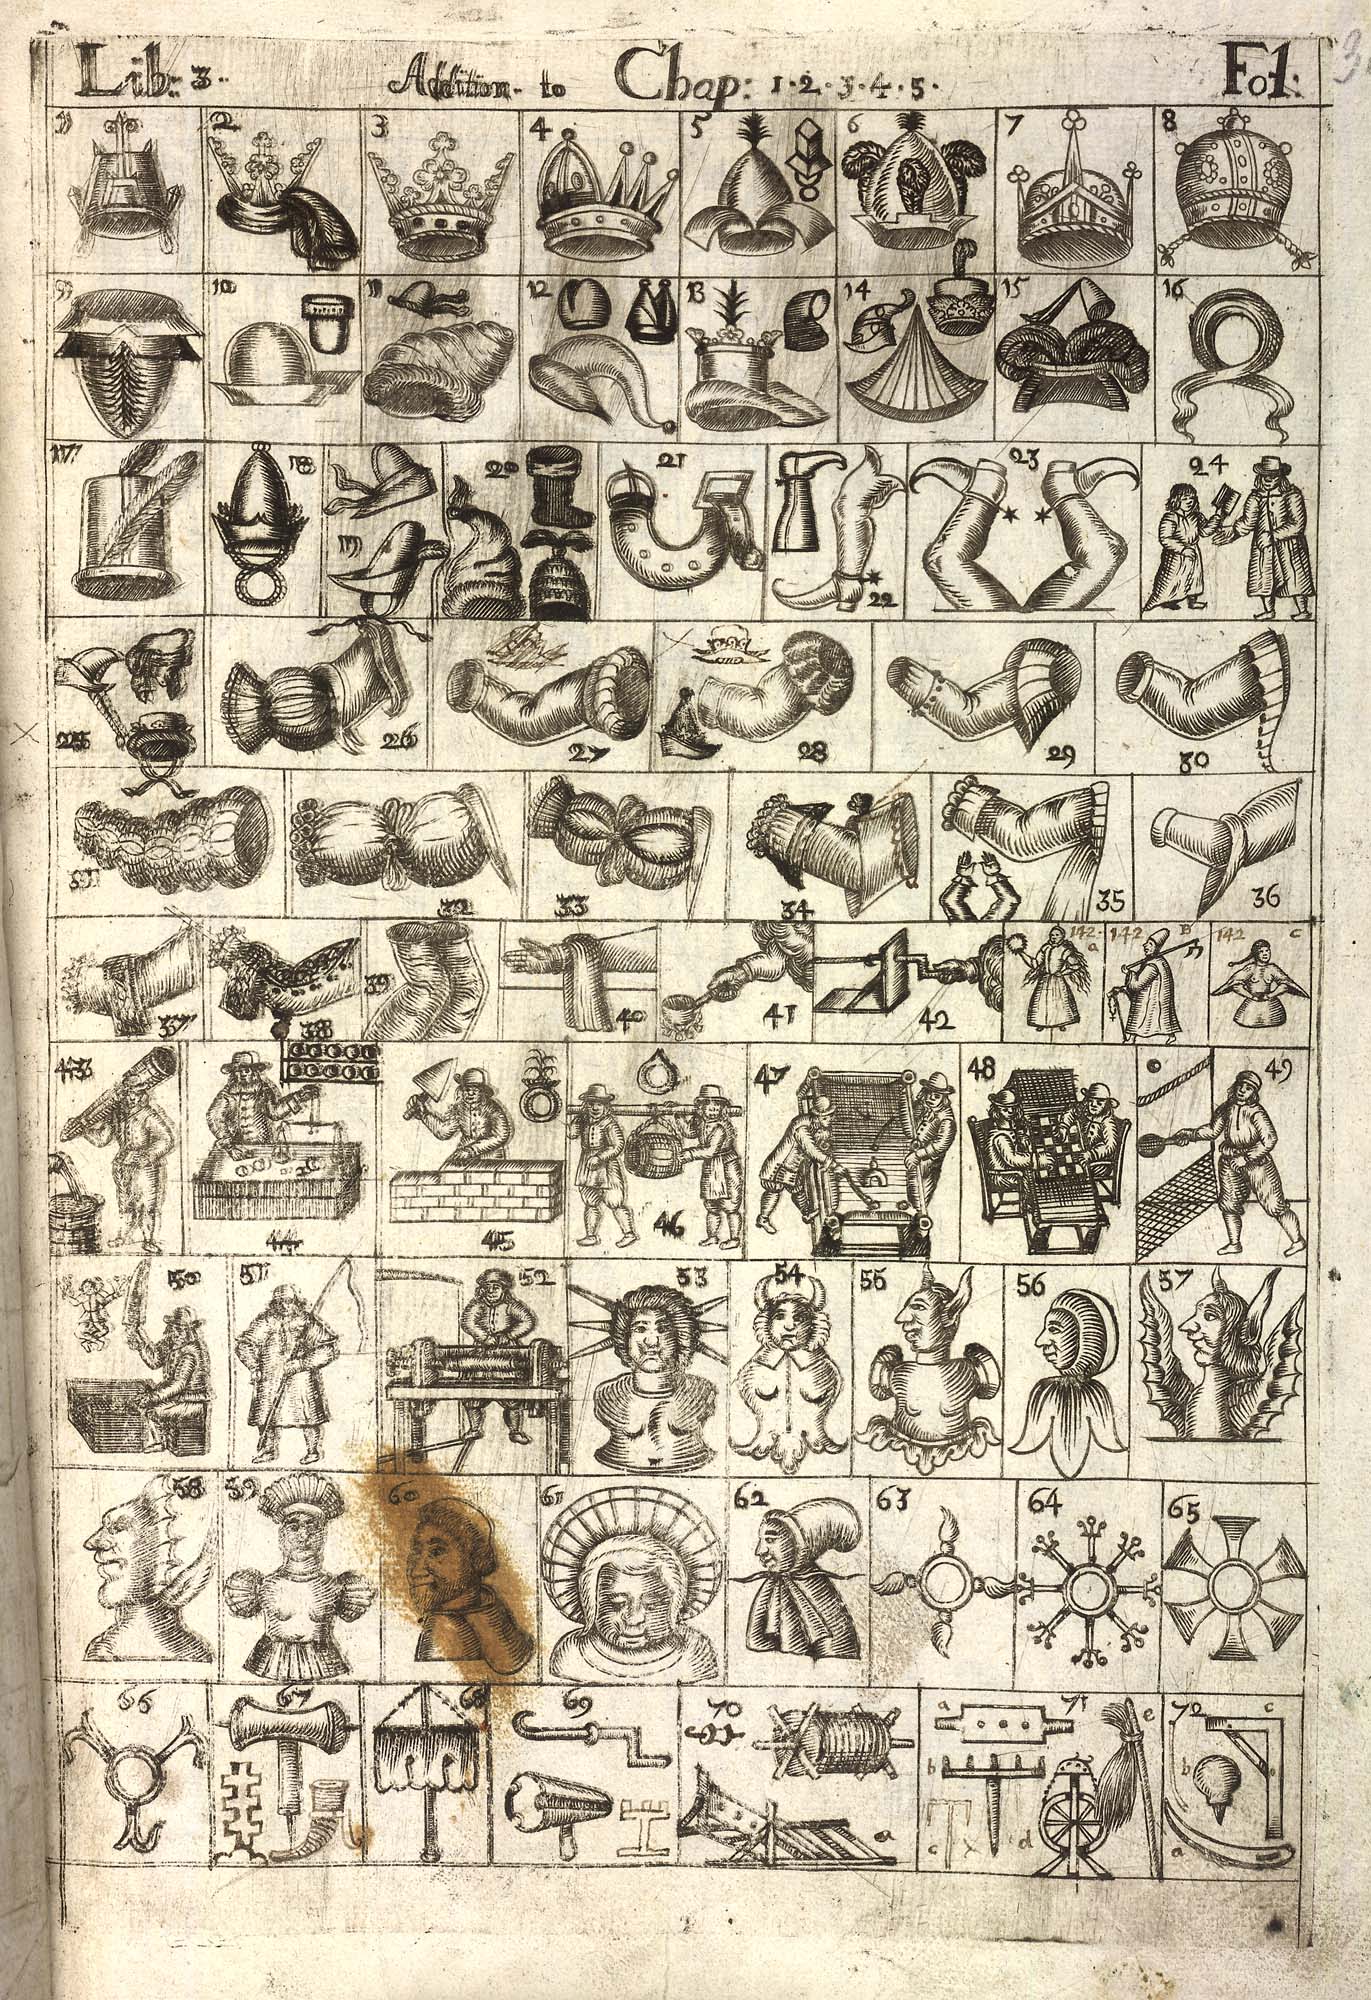 Lib: 3. Addition to Chap: 1. 2. 3. 4. 5. Fol: 1
1 2 3 4 5 6 7 8
9 10 11 12 13 14 15 16
17 18 19 20 21 22 23 24
25 26 27 28 29 30
31 32 33 34 35 36
37 38 39 40 41 42 142 a 142 B 142 c
43 44 45 46 47 48 49
50 51 52 53 54 55 56 57
58 59 60 61 62 63 64 65
66 67 68 69 70 a 71 a b c d e 72 a b c